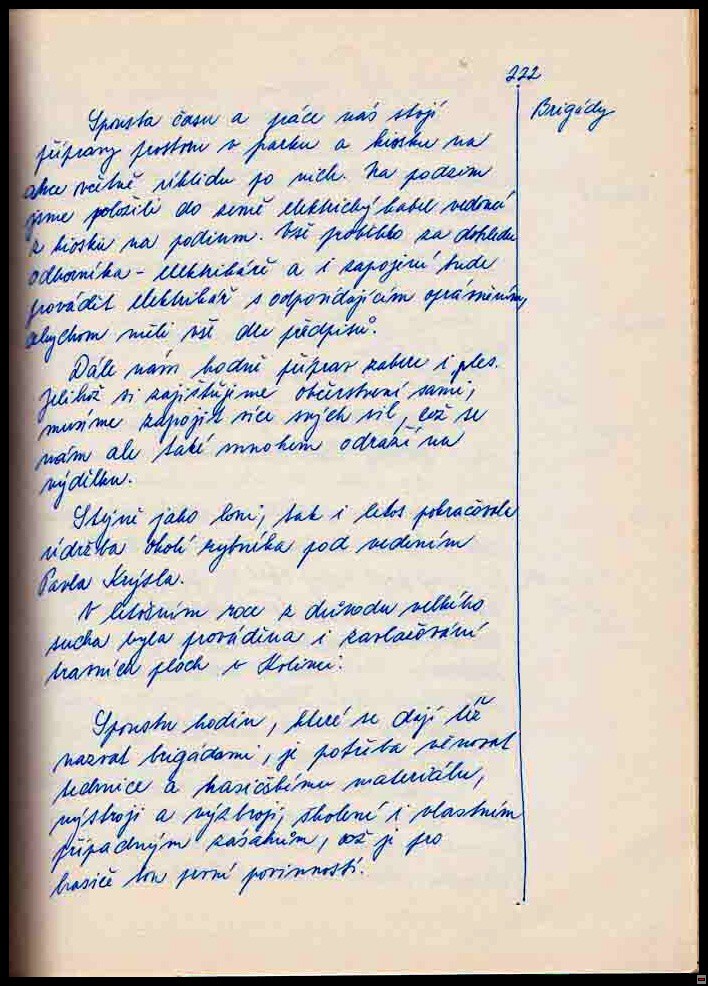 222
Brigády
Spousta času a práce nás stojí
přípravy prostoru v parku a kiosku na
akce včetně úklidu po nich. Na podzim
jsme položili do země elektrický kabel vedoucí
z kiosku na podium. Vše proběhlo za dohledu
odborníka - elektrikáře a i zapojení bude
provádět elektrikář s odpovídajícím oprávněním,
abychom měli vše dle předpisů.
Dále nám hodně příprav zabere i ples.
Jelikož si zajišťujeme občerstvení sami,
musíme zapojit více svých sil, což se
nám ale také mnohem odráží na
výdělku.
Stejně jako loni, tak i letos pokračovala
údržba okolí rybníka pod vedením
Pavla Krýsla.
V letošním roce z důvodu velkého
sucha byla prováděna i zavlačování
travních ploch v Kolinci.
Spoustu hodin, které se dají též
nazvat brigádami, je potřeba věnovat
technice a hasičskému materiálu,
výstroji a výzbroji, školení i vlastním
případným zásahům, což je pro
hasiče tou první povinností.